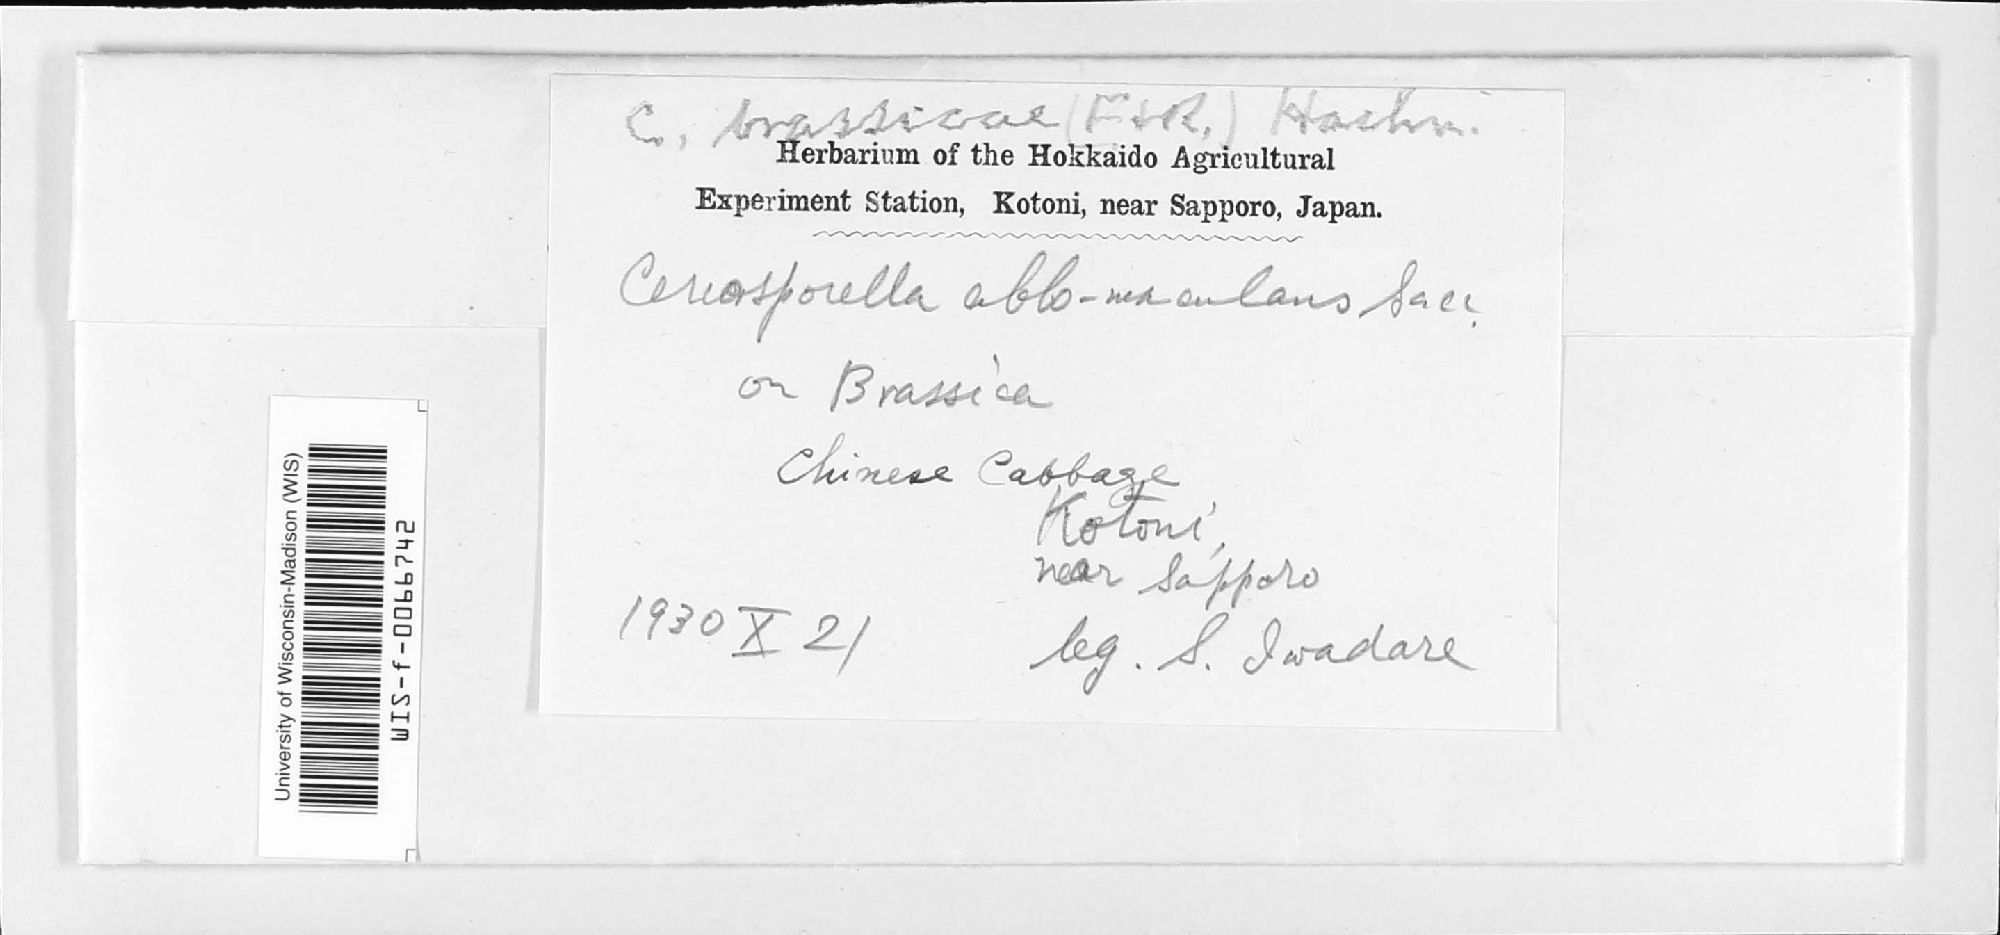 C. brassicae (F+R.) Hoehn.
Herbarium of the Hokkaido Agricultural
Experiment Station, Kotoni, near Sapporo, Japan.
Cercosporella albo-maculans Sacc.
on Brassica
Chinese Cabbage
Kotoni,
near Sapporo
1930 X 21
leg. S. Iwadare
University of Wisconsin-Madison (WIS)
WIS-f-0066742